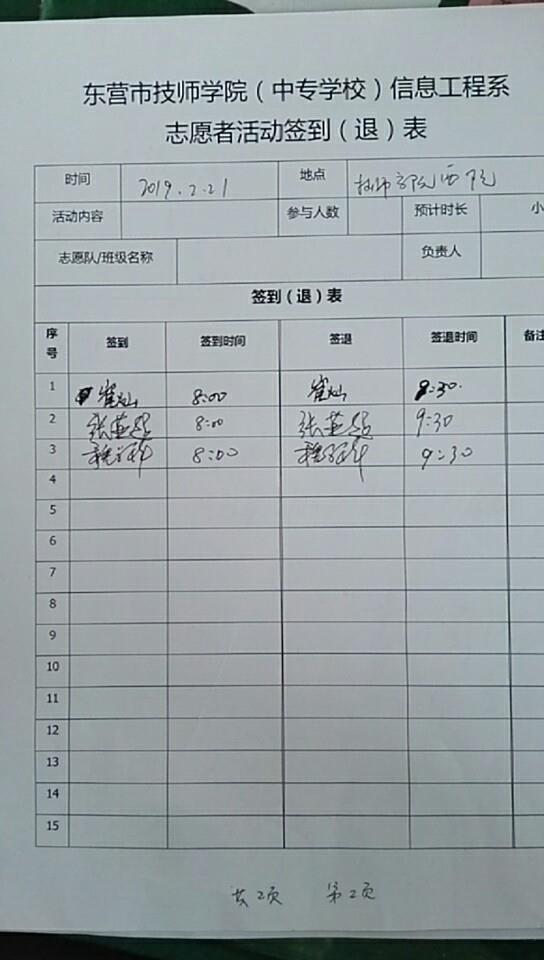 东营市技师学院（中专学校）信息工程系
志愿者活动签到（退）表
时间 2019.2.21 地点 技师学院西院
活动内容 参与人数 预计时长 小
志愿队/班级名称 负责人
签到（退）表
序号 签到 签到时间 签退 签退时间 备注
1 崔灿 8:00 崔灿 9:30
2 张 8:00 张 9:30
3 程 8:00 程 9:30
4
5
6
7
8
9
10
11
12
13
14
15
共2页 第2页